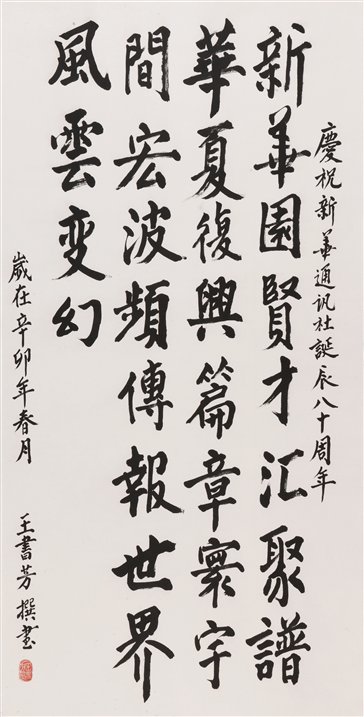 慶祝新華通讯社誕辰八十周年
新華園賢才汇聚譜
華夏復興篇章寰宇
間宏波頻傳報世界
風雲变幻
嵗在辛卯年春月
王書芳撰書